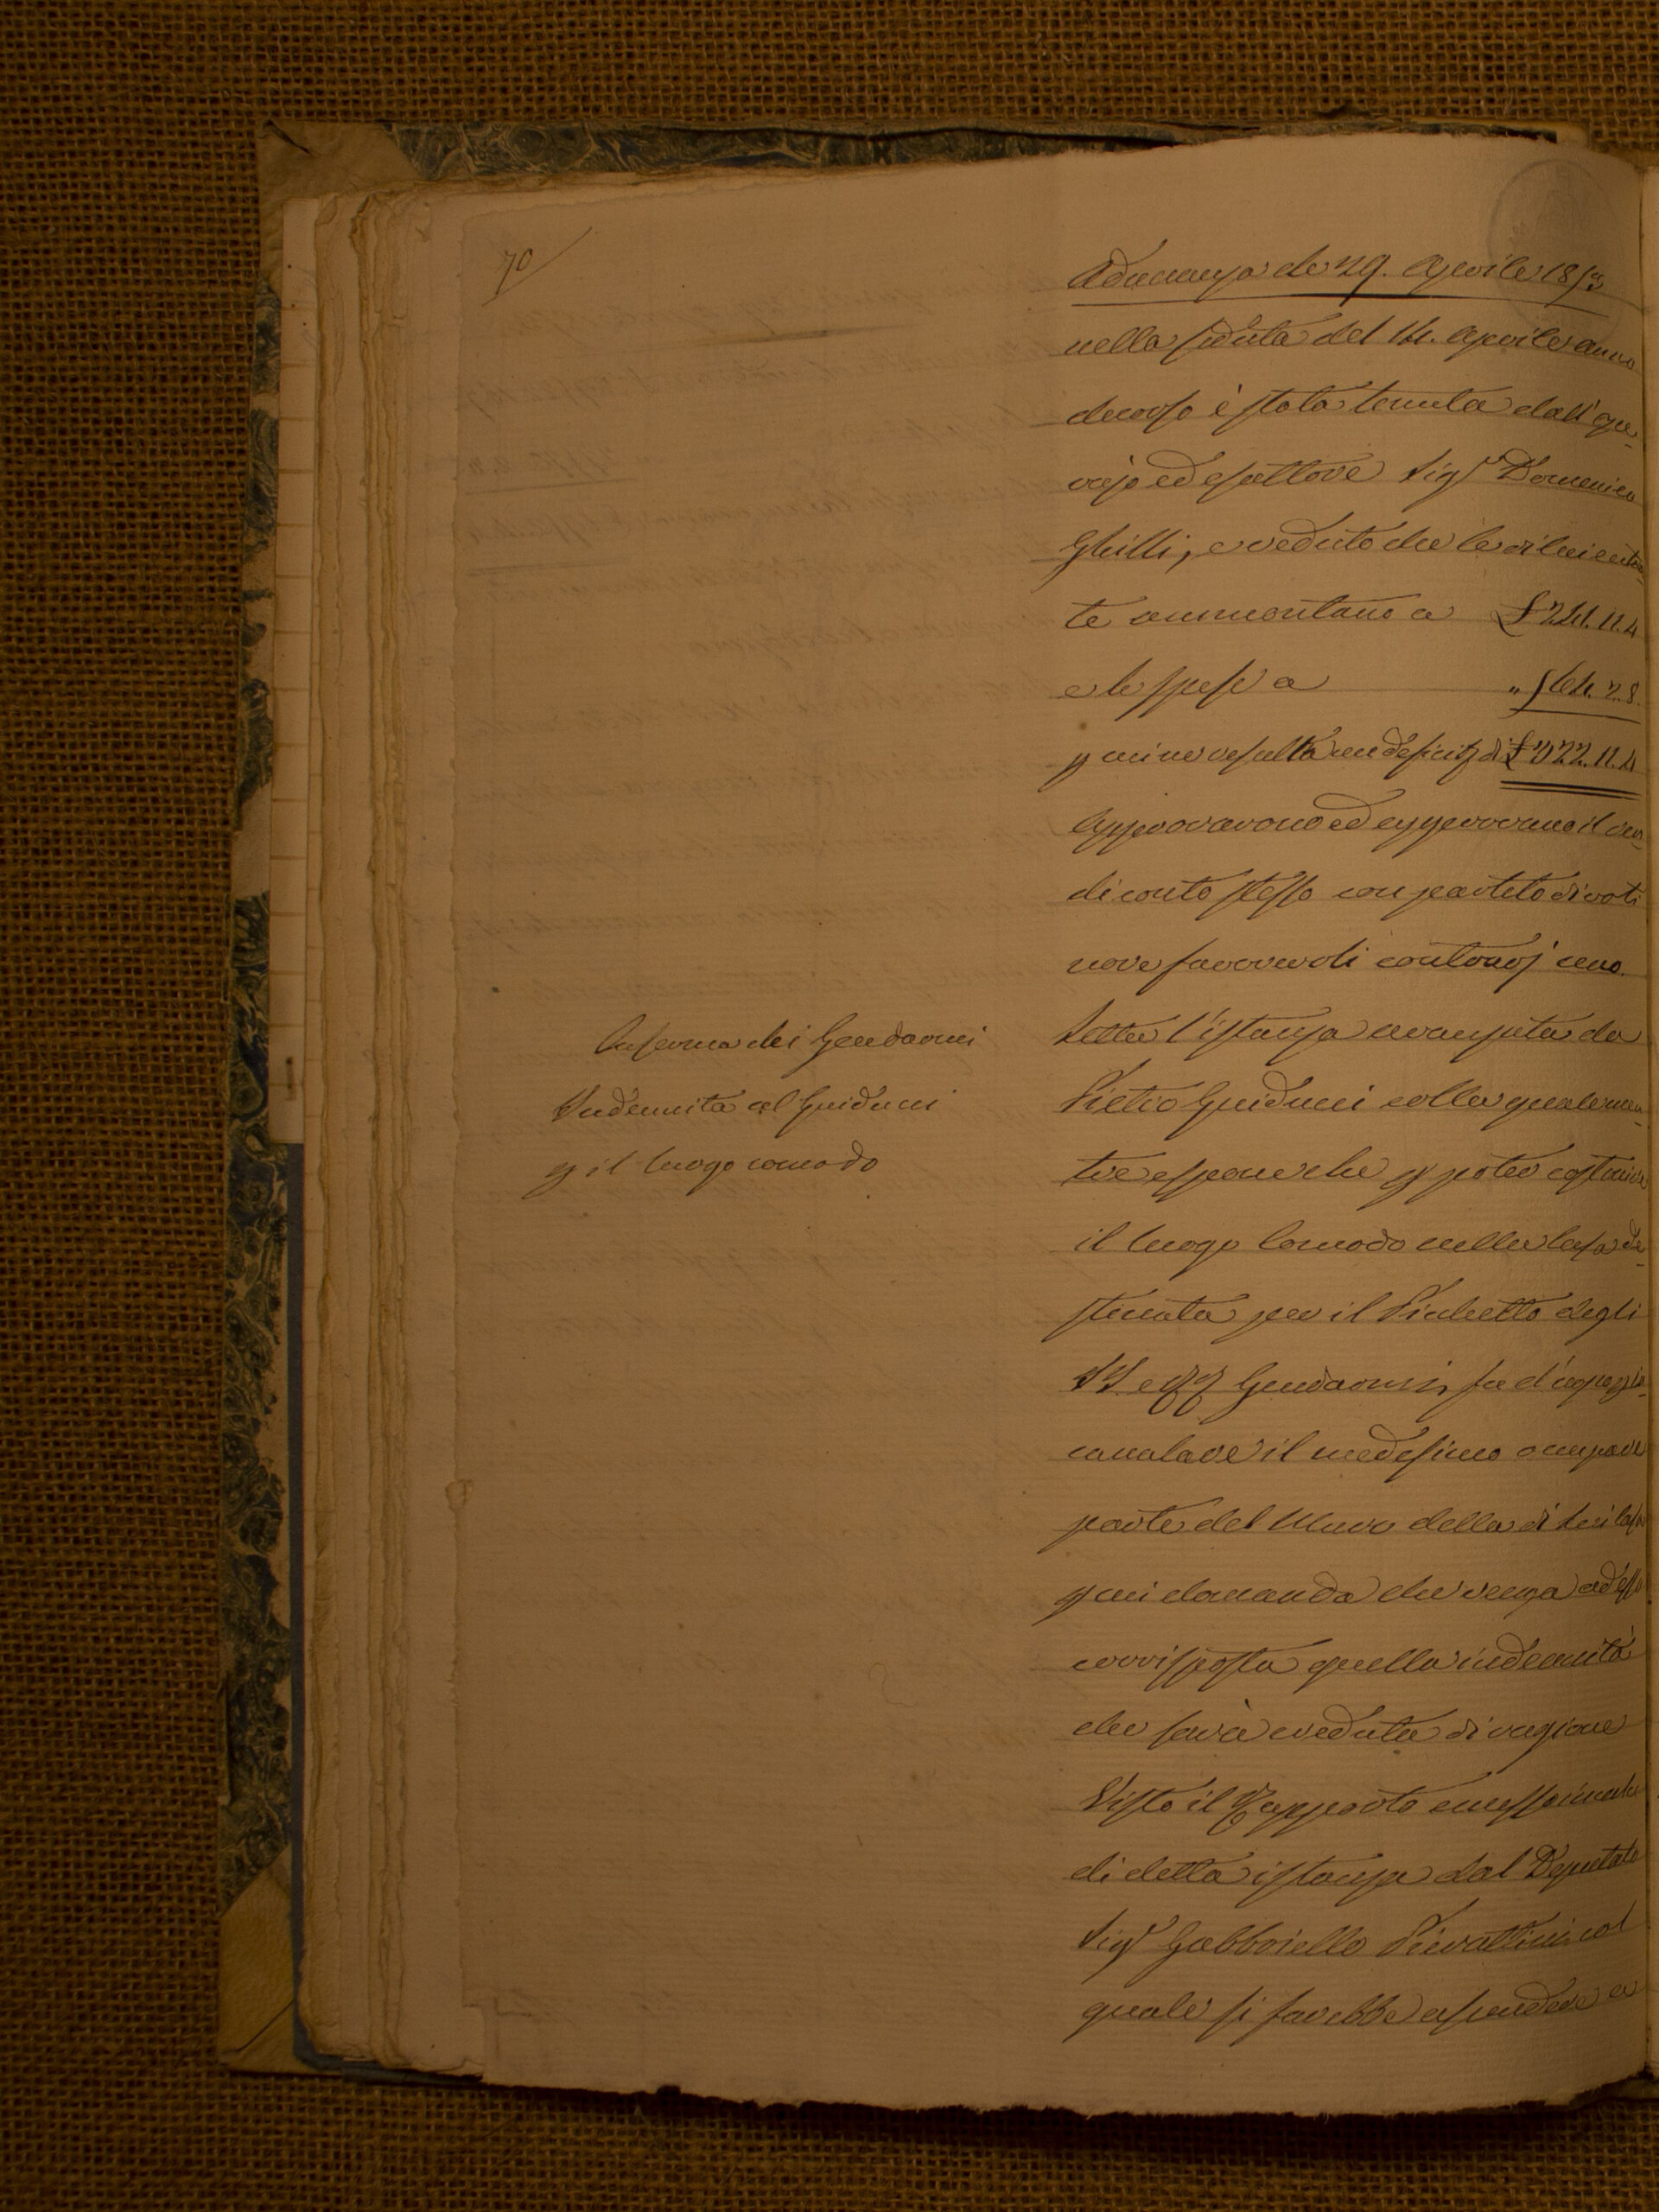 70
Adunanza de 29. Aprile 1853
nella seduta del 14. Aprile anno
decorso è stata tenuta dall' ope-
rajo ed esattore Sigr Domenico
Ghilli, e veduto che le di lui entra-
te ammontano a £ 241. 11. 4
e le spese a
p cui ne resulta un deficit di
Approvarono ed approvano il ren-
diconto stesso con partito di voti
nove favorevoli contrarj uno.
Caserma dei Gendarmi
Indennità al Guiducci
p il luogo comodo
Letta l'istanza avanzata da
Pietro Guiducci colla quale men-
tre espone che p poter costruire
il luogo Comodo nella Casa de-
stinata per il Picchetto degli
II. e RR. Gendarmi, fu d'uopo p in-
canalare il medesimo occupare
parte del Muro della di Lui Casa
p cui domanda che venga ad esso
corrisposta quella indennità
che sarà creduta di ragione
Visto il Rapporto emesso in calce
di detta istanza dal Deputato
Sigr Gabbriello Pierattini col
quale si farebbe ascendere a